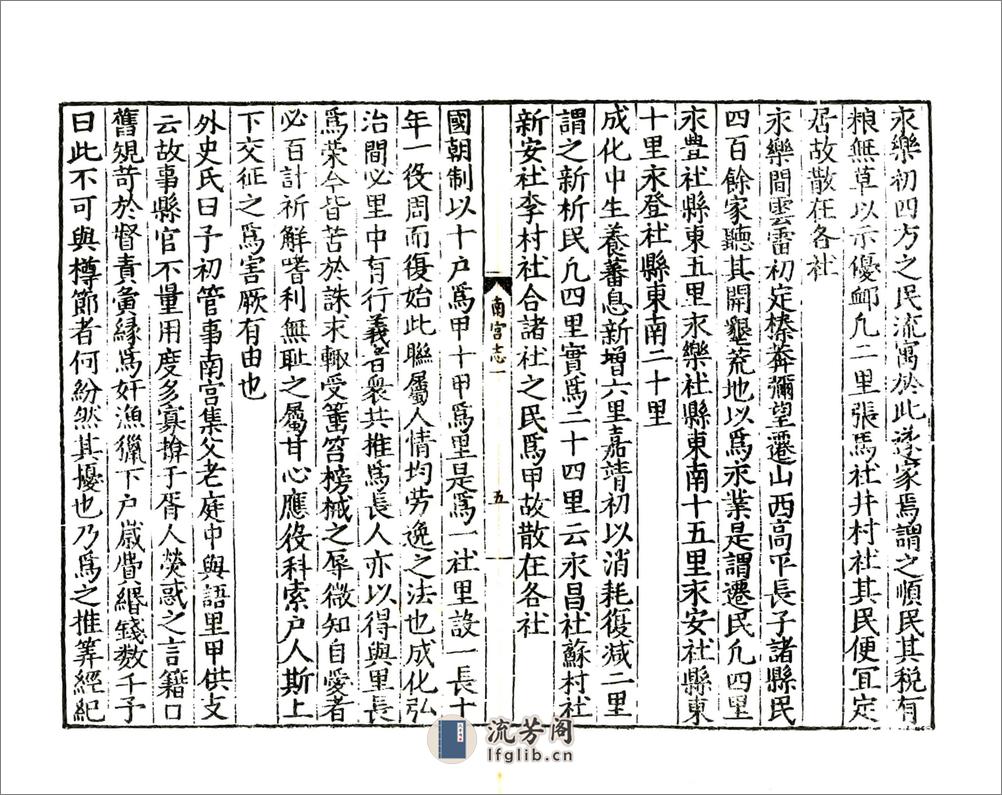 永樂初四方之民流寓於此遂家焉謂之順民其税有
粮無草以示優䘏凢二里張馬社井村社其民便冝定
居故散在各社
永樂間雲雷初定榛莽彌望遷山西高平長子諸縣民
四百餘家聽其開墾荒地以爲永業是謂遷民凢四里
永豐社縣東五里永樂社縣東南十五里永安社縣東
十里永登社縣東南二十里
成化中生養蕃息新增六里嘉靖初以消耗復減二里
謂之新析民凢四里實爲二十四里云永昌社蘇村社
新安社李村社合諸社之民爲甲故散在各社
南宫志一
五
國朝制以十户爲甲十甲爲里是爲一社里設一長十
年一役周而復始此聯屬人情均労逸之法也成化弘
治間必里中有行義者衆共推爲長人亦以得與里長
爲荣今皆苦於誅求輙受箠笞榜械之辱微知自愛者
必百計祈解嗜利無耻之屬甘心應役科索户人斯上
下交征之爲害厥有由也
外史氏曰予初管事南宫集父老庭中與語里甲供支
云故事縣官不量用度多寡揜于胥人熒惑之言籍口
舊規苛於督責夤縁爲奸漁獵下户歳費緡錢数千予
曰此不可與樽節者何紛然其擾也乃爲之推筭經紀
流芳阁
lfglib.cn